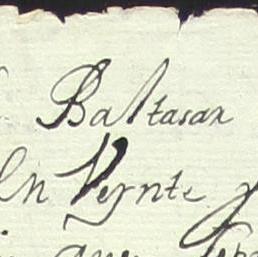 Baltasar
En Veynte y
que